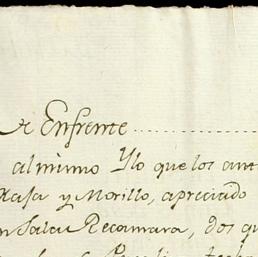 Enfrente
al mismo Ylo que los ant
y Morillo, apreciado
Sala Recamara, dos qu